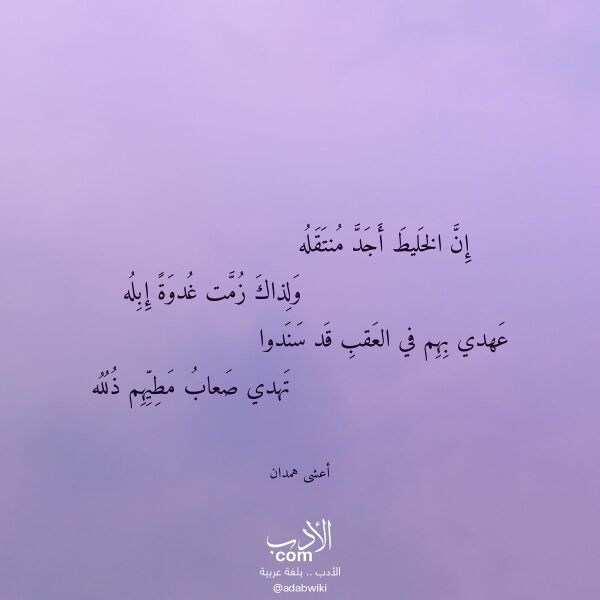 إِنَّ الخَليطَ أَجَدَّ مُنتَقَلُه
وَلِذاكَ زُمَّت غُدوَةً إِبِلُه
عَهدي بِهِم في العَقبِ قَد سَنَدوا
تَهدي صَعابُ مَطِيِّهِم ذُلُلُه
أعشى همدان
الأدب
.com
الأدب .. بلغة عربية
@adabwiki